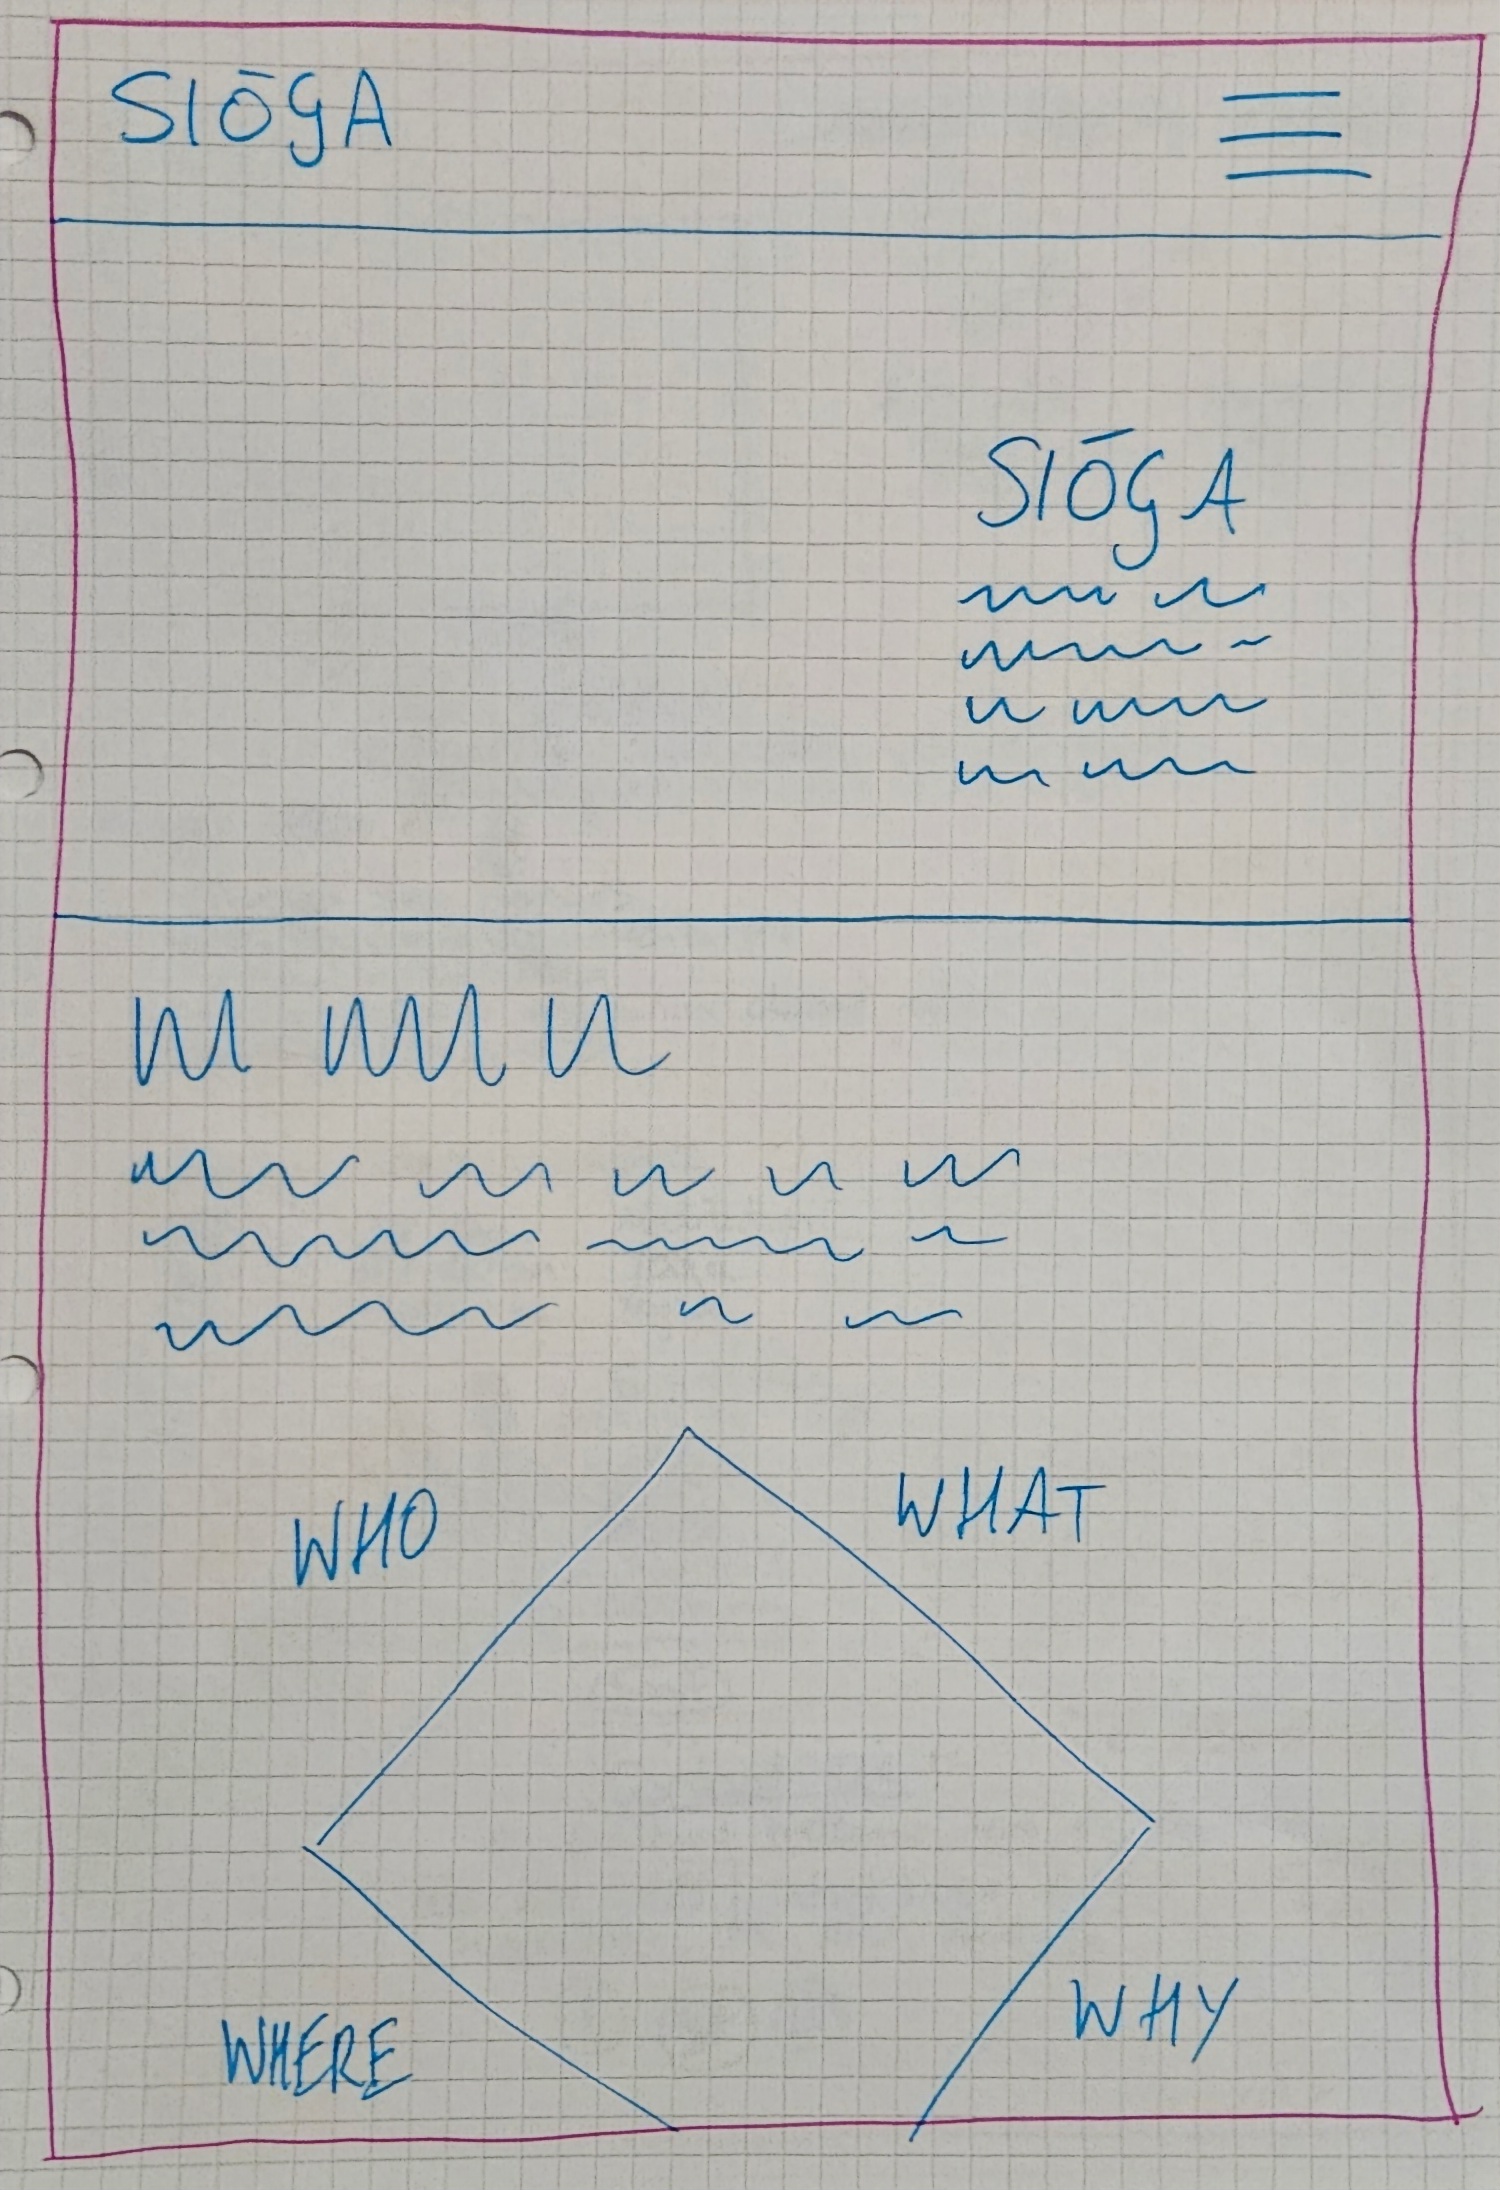 SIŌGA
SIŌGA
WHO
WHAT
WHERE
WHY